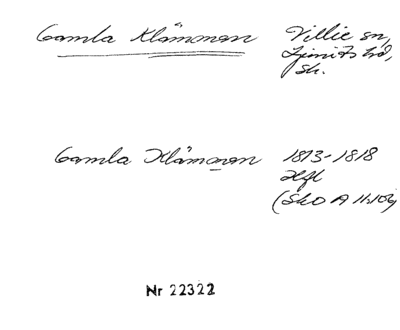 Gamla Klämman Villie sn,
Ljunits hd,
Sk.
Gamla Klämman 1813-1818
Hfl
(SkO A II:10
Nr 22322